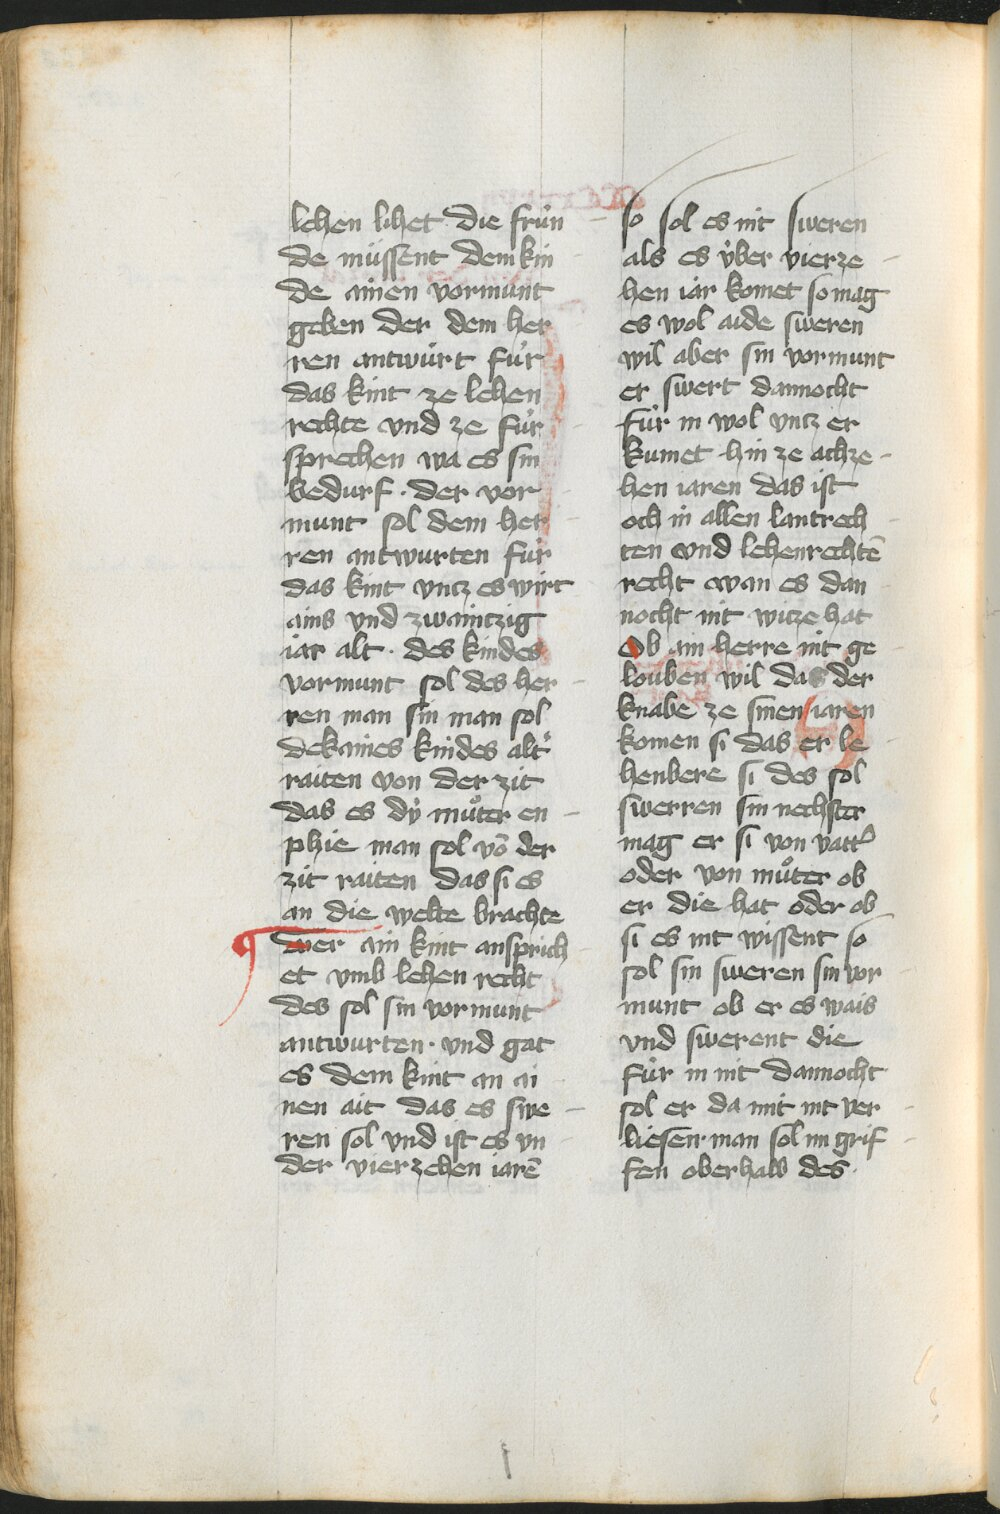 lehen lihet die frún
de müssent dem kin
de ainen vormunt
geben der dem her
ren antwúrt fúr
das kint ze lehen
rechte vnd ze fúr
sprechen wa es sin
bedurf · der vor
munt sol dem her
ren antwurten fúr
das kint vntz es wirt
ains vnd zwaintzig
iar alt · des kindes
vormunt sol des her
ren man sin man sol
dekaines kindes alt͛
raiten von der zit
das es dÿ můter en
phie man sol vō der
zit raiten das si es
an die welte brachte
wer ain kint ansprich
et vmb lehen recht
des sol sin vormunt
antwurten · vnd gat
es dem kint an ai
nen ait das es swe
ren sol vnd ist es vn
der vierzehen iarē
so sol es nit sweren
als es v́ber vierze
hen iar komet so mag
es wol aide sweren
wil aber sin vormunt
er swert dannocht
fúr in wol vntz er
kumet hin ze achze
hen iaren das ist
och in allen lantrech
ten vnd lehenrechtē
recht wan es dan
nocht nit witze hat
Ob ain herre nit ge
louben wil das der
knabe ze sinen iaren
komen si das er le
henbere si des sol
swerren sin nechster
mag er si von vatt͛
oder von můter ob
er die hat oder ob
si es nit wissent so
sol sin sweren sin vor
munt ob er es wais
vnd swerent die
fúr in nit dannocht
sol er da mit nit ver
liesen man sol im grif
fen oberhalb des